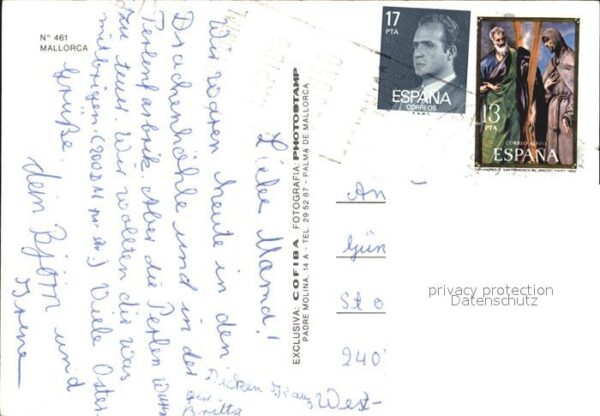 N° 461
MALLORCA
Liebe Mama!
Wir waren heute in den
Drachenhöhle und in der
Perlenfabrik. Aber die Perlen waren
zu teuer. Wir wollten dir was
mitbringen. (200DM pr. St.) Viele Oster
Grüße.
dein Björn und
Irene
Dicken Kuss
Britta
EXCLUSIVA: COFIBA FOTOGRAFIA: PHOTOSTAMP
PADRE MOLINA, 14 A - TEL. 29 52 87 - PALMA DE MALLORCA
17
PTA
ESPAÑA
CORREOS
13
PTA
CORREO AEREO
ESPAÑA
An
Gün
Sto
240
West-
privacy protection
Datenschutz